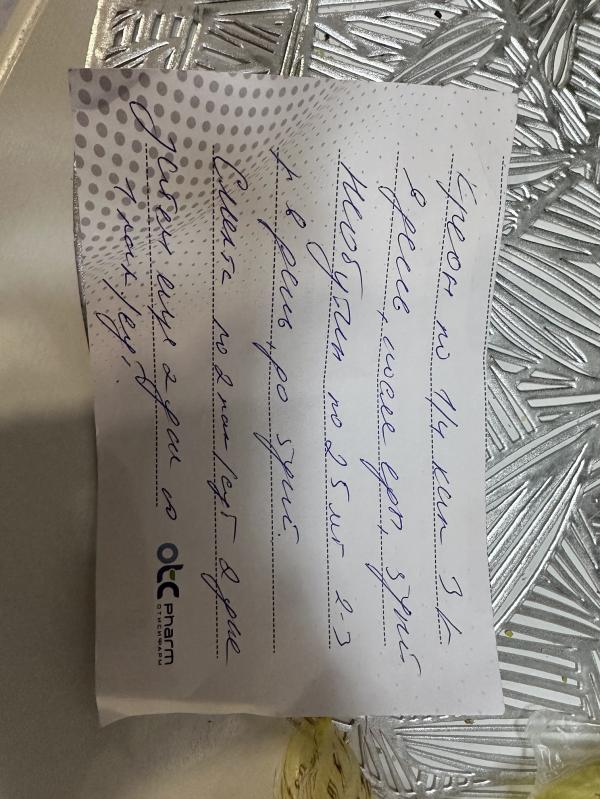 Креон по 1/4 кап 3 р
в день, после еды, 5 дней
Необутин по 25 мг 2-3
р в день, до 5 дней.
Смекта по 2 пак/сут 2 дня
Затем еще 2 дня по
1 пак/сут.
otc pharm
ОТИСИФАРМ